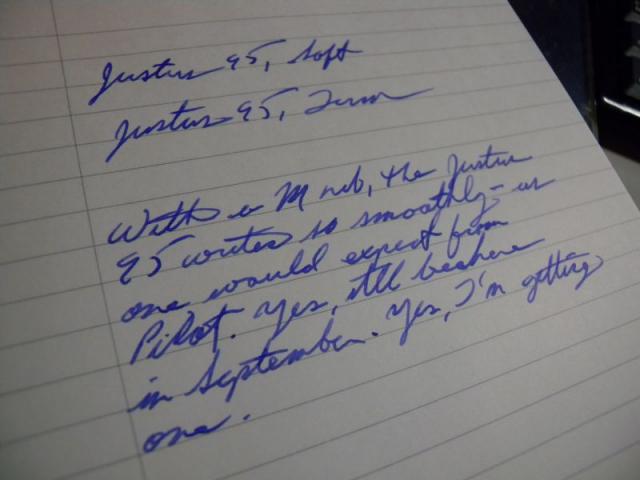 Justus 95, soft
Justus 95, Firm
With a M nib, the Justus
95 writes so smoothly - as
one would expect from
Pilot. Yes, it'll be here
in September. Yes, I'm getting
one.